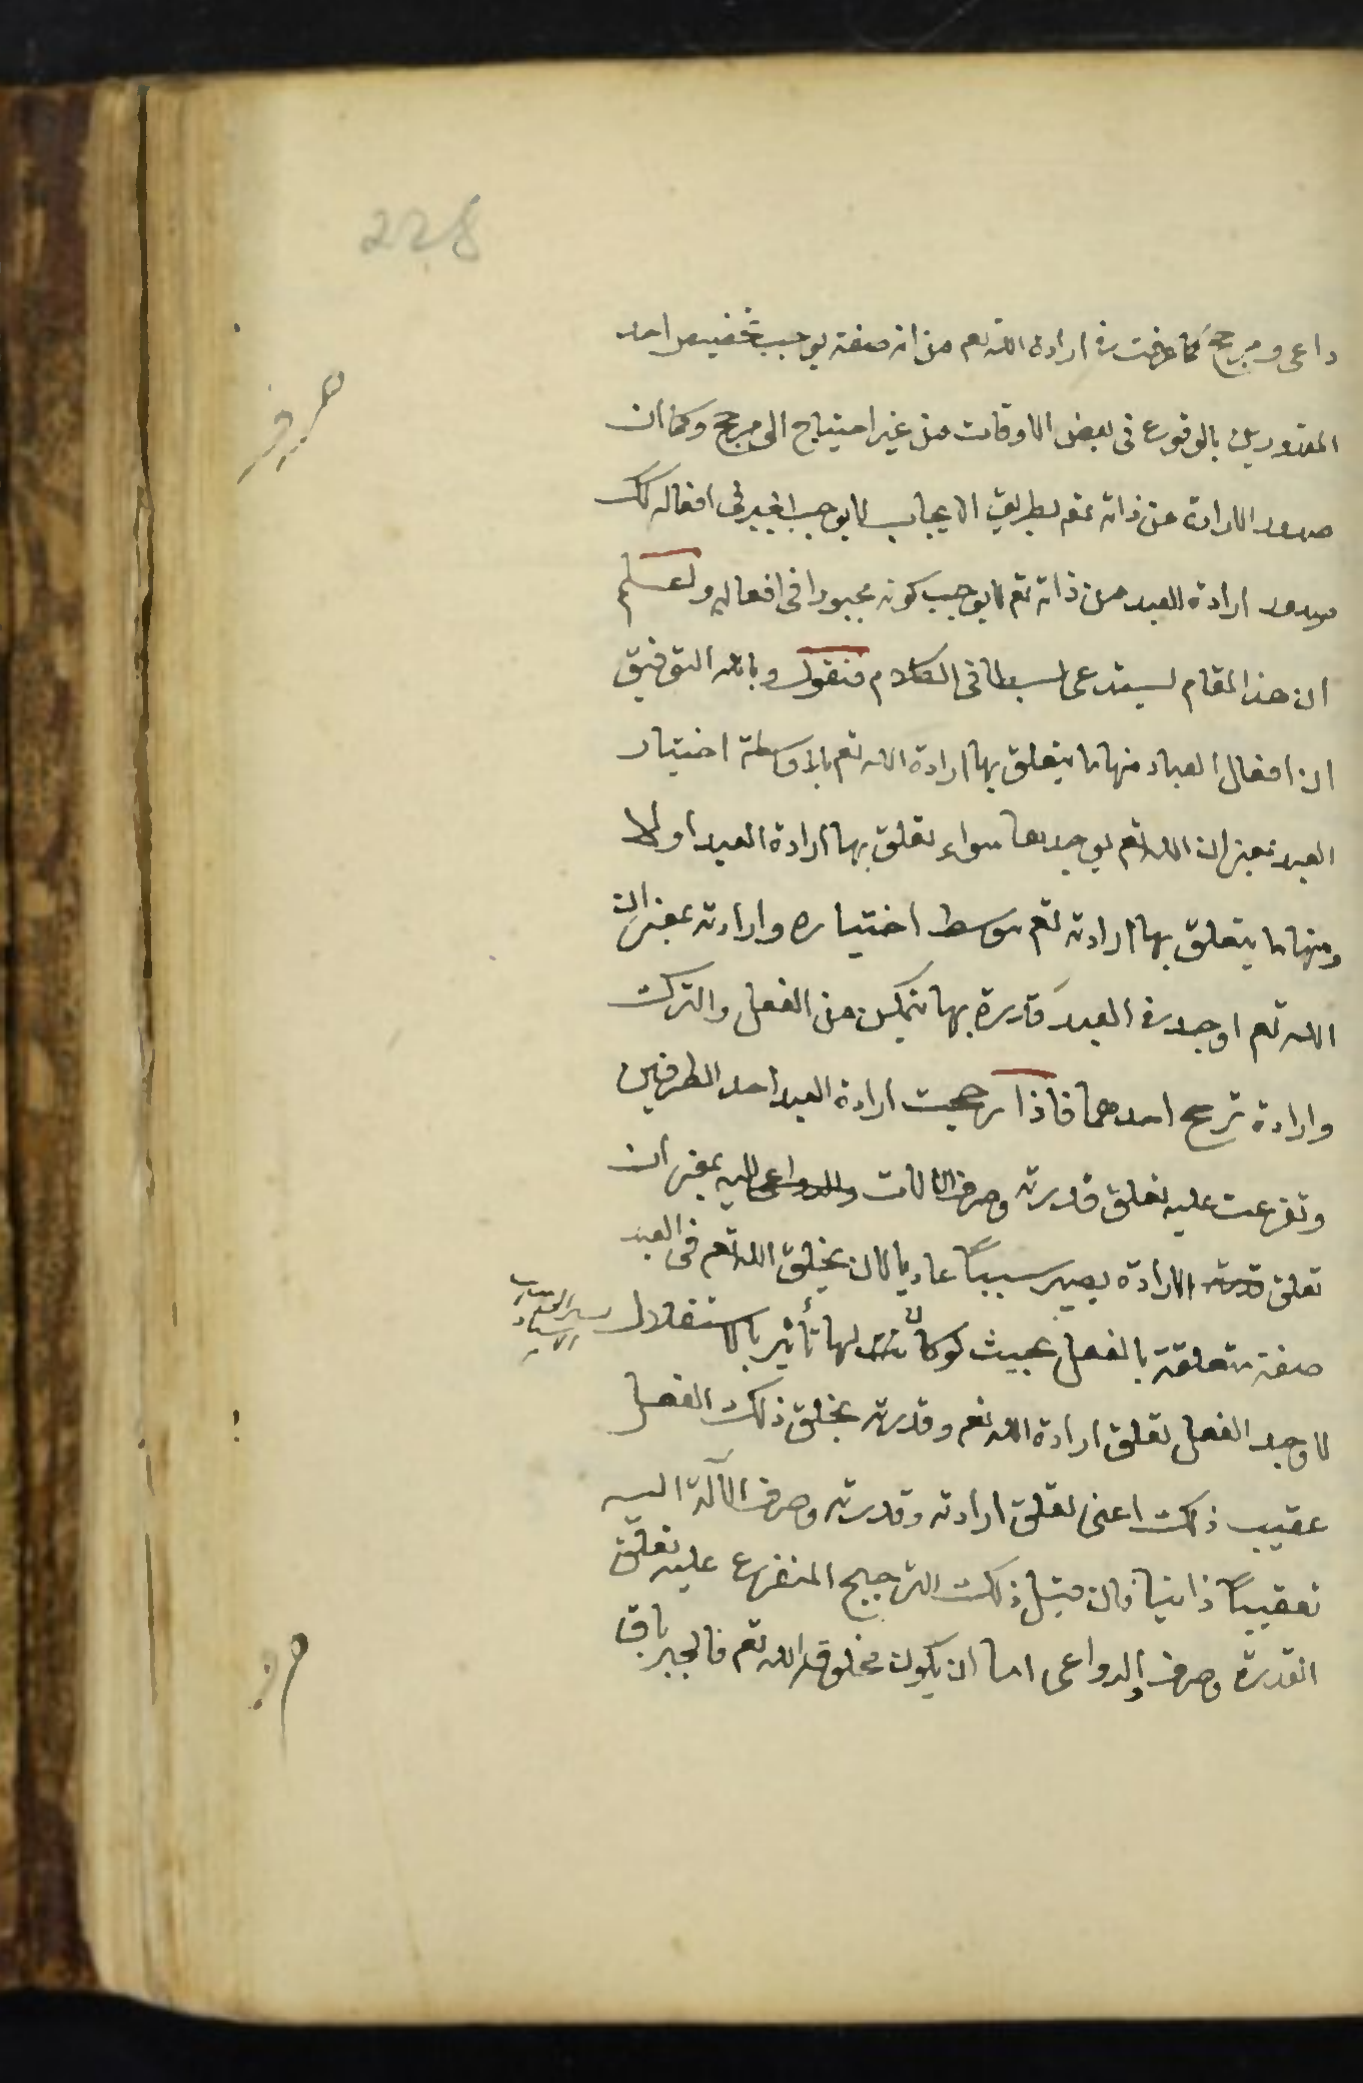 228
داعى ومرجح كما عرفت فى ارادة الله تعم من انه صفة يوجب تخصيص احد
المقدورين بالوقوع فى بعض الاوقات من غير احتياج الى مرجح وكما ان
صدور الارادة عن ذاته تعم بطريق الايجاب لا يوجب الجبر فى افعاله كك
صدور ارادة العبد من ذاته تعم لا يوجب كونه مجبورا فى افعاله ولعلم
ان هذا المقام يستدعى بسطا فى الكلام فنقول وبالله التوفيق
ان افعال العباد منها ما يتعلق بها ارادة الله تعم بلا وسطة اختيار
العبد بمعنى ان الله تعم يوجدها سواء تعلق بها ارادة العبد او لا
ومنها ما يتعلق بها ارادته تعم بتوسط اختياره وارادته بمعنى ان
الله تعم اوجد فى العبد قدرة بها يتمكن من الفعل والترك
وارادة ترجح احدهما فاذا رجحت ارادة العبد احد الطرفين
وتفرعت عليه تعلق قدرته وصرف الالات والدواعى اليه بمعنى ان
تعلق قدرته الارادة يصير سببًا عاديا لان يخلق الله تعم فى العبد
صفة متعلقة بالفعل بحيث لو كان لها تأثير بالاستقلال
لاوجد الفعل تعلق ارادة الله تعم وقدرته بخلق ذلك الفعل
عقيب ذلك اعنى تعلق ارادته وقدرته وصرف الآلة اليه
تعقيبًا ذاتيا فان قيل ذلك الترجيح المتفرع عليه تعلق
القدرة وصرف الدواعى اما ان يكون مخلوق الله تعم فالجبر باق